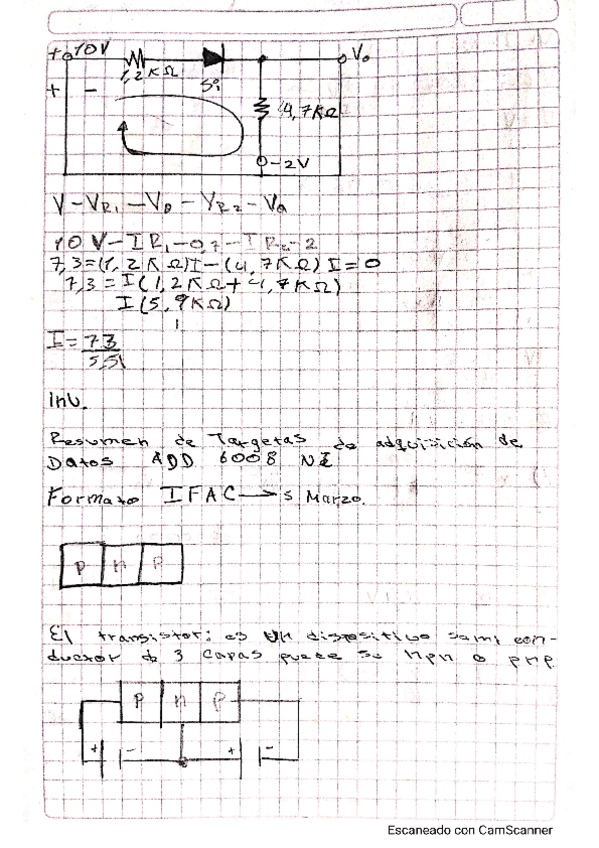 + 10V
1,2KΩ
Si
Vo
+ -
4,7KΩ
-2V
V-VR1-VD-VR2-Va
10V-IR1-0,7-IR2-2
7,3=(1,2KΩ)I-(4,7KΩ)I=0
7,3=I(1,2KΩ+4,7KΩ)
I(5,9KΩ)
I=
Inv.
Resumen de Targetas de adquisición de
Datos ADD 6008 NI
Formato IFAC→5 Marzo.
P n P
El transistor: es un dispositivo semi con-
ductor de 3 capas puede npn o pnp
P n P
+ - + -
Escaneado con CamScanner